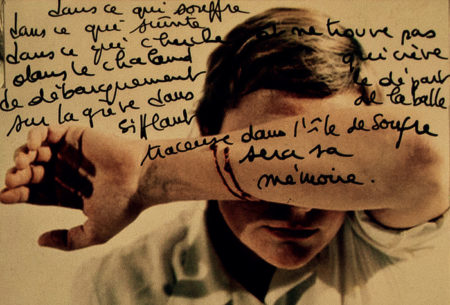 dans ce qui souffre
dans ce qui suinte
dans ce qui cherche et ne trouve pas
dans le chaland qui crève
de débarquement le départ
sur la grève dans de la balle
sifflant
traceuse dans l'île de Soufre
sera sa
mémoire.